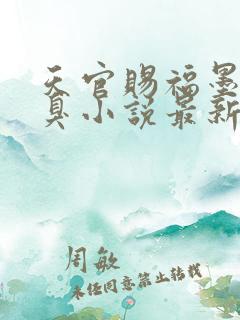 天官赐福墨
真小说最新
周敏
未经同意禁止转载